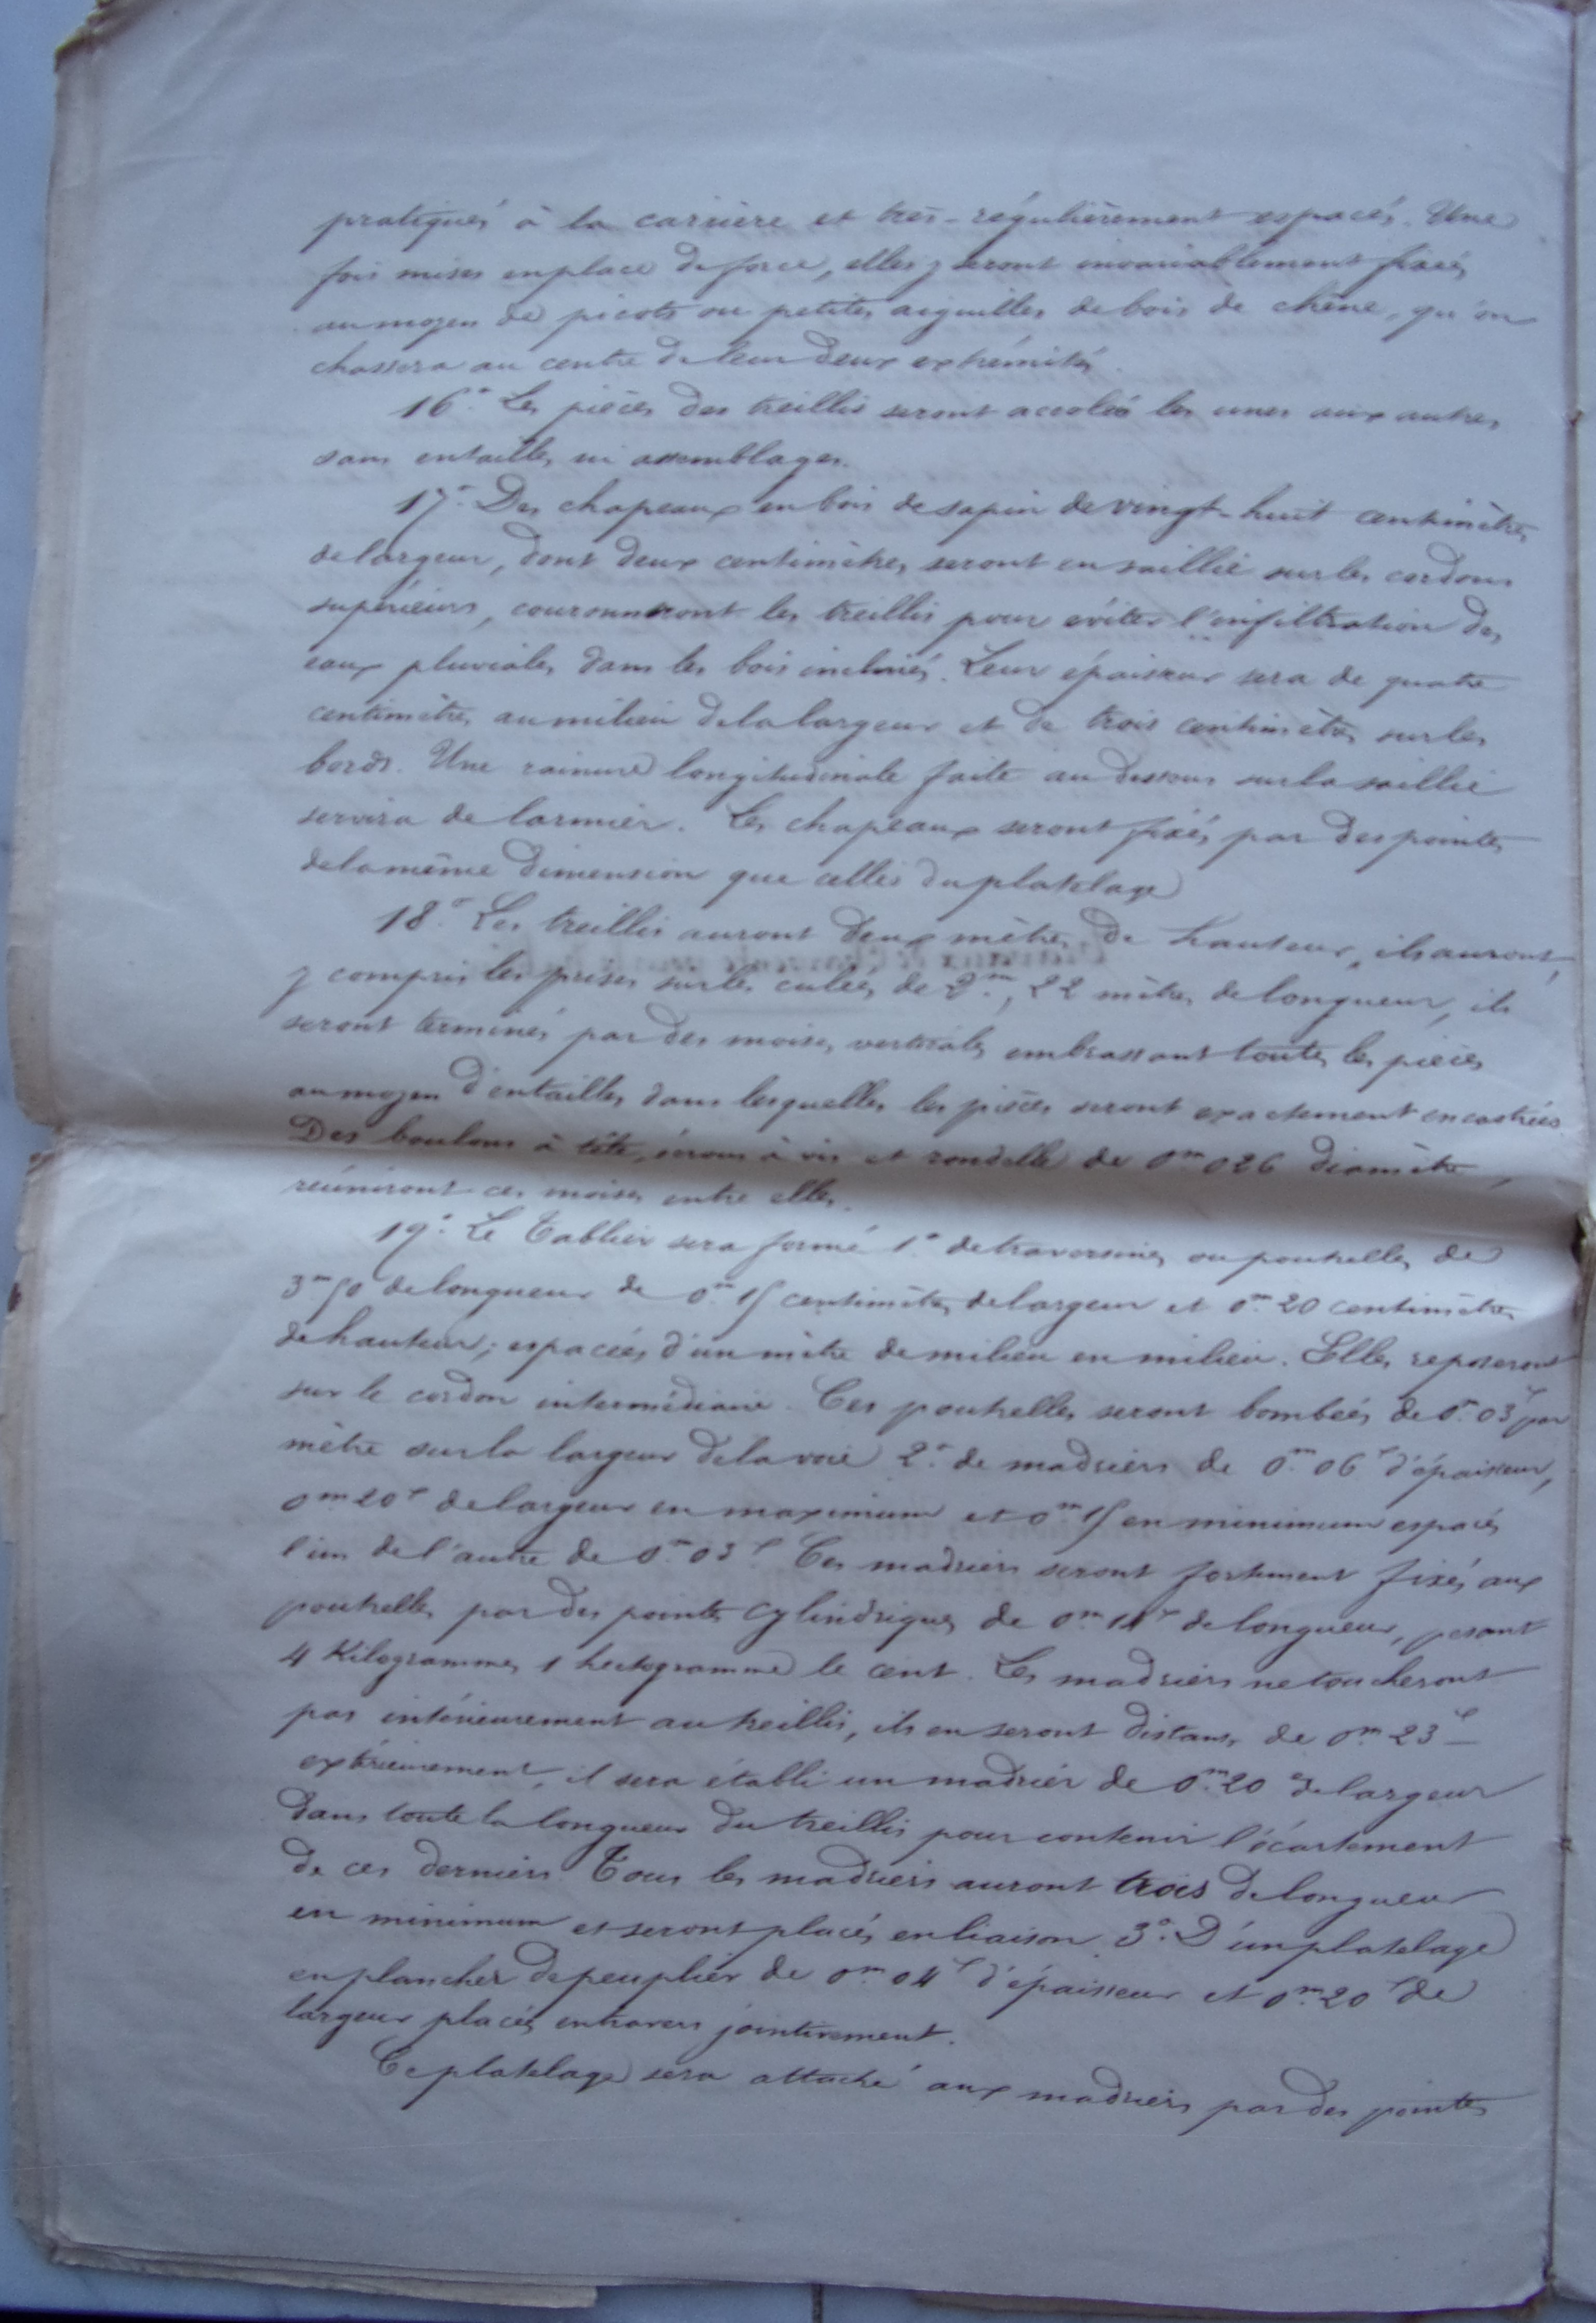 pratiqués à la carrière et très-régulièrement espacés. Une
fois mises en place de force, elles y seront invariablement fixées,
au moyen de picots ou petites aiguilles de bois de chêne, qu'on
chassera au centre de leur deux extrémités.
16.° Les pièces des treillis seront accolées les unes aux autres,
sans entailles, ni assemblages.
17.° Des chapeaux en bois de sapin de vingt-huit centimètres
de largeur, dont deux centimètres, seront en saillie sur les cordons
supérieurs, couronneront les treillis pour éviter l'infiltration des
eaux pluviales, dans les bois inclinés. Leur épaisseur sera de quatre
centimètres au milieu de la largeur et de trois centimètres sur les
bords. Une rainure longitudinale faite au dessous sur la saillie
servira de larmier. Les chapeaux seront fixés, par des pointes
de la même dimension que celles du platelage
18.° Les treillis auront deux mètres de hauteur, ils auront,
y compris les prises sur les culées, de 22 mètres de longueur, ils
seront terminés par des moises, verticales embrassant toutes les pièces
au moyen d'entailles, dans lesquelles les pièces seront exactement encastrées.
Des boulons à tête, écrous à vis et rondelle de 0m 026 diamètre,
réuniront ces moises entre elles.
19.° Le Tablier sera formé 1.° de traversines ou poutrelles, de
3m 50 de longueur de 0m 15 centimètres de largeur et 0m 20 centimètres
de hauteur; espacées d'un mètre de milieu en milieu. Elles reposeront
sur le cordon intermédiaire. Ces poutrelles, seront bombées de 0m 03c par
mètre sur la largeur de la voie 2.° de madriers de 0m 06c d'épaisseur,
0m 20c de largeur en maximum et 0m 15 en minimum espacés
l'un de l'autre de 0m 03c Ces madriers seront fortement fixés, aux
poutrelles, par des pointes cylindriques de 0m 14c de longueur, pesant
4 Kilogrammes, 1 hectogramme le cent. Les madriers ne toucheront
pas intérieurement au treillis, ils en seront distans, de 0m 23c
extérieurement, il sera établi un madrier de 0m 20 de largeur
dans toute la longueur du treillis pour contenir l'écartement
de ces derniers Tous les madriers auront trois de longueur
en minimum et seront placés, en liaison. 3.° D'un platelage
en plancher de peuplier de 0m 04c d'épaisseur et 0m 20c de
largeur placés, en travers jointivement.
Ce platelage sera attaché aux madriers par des pointes